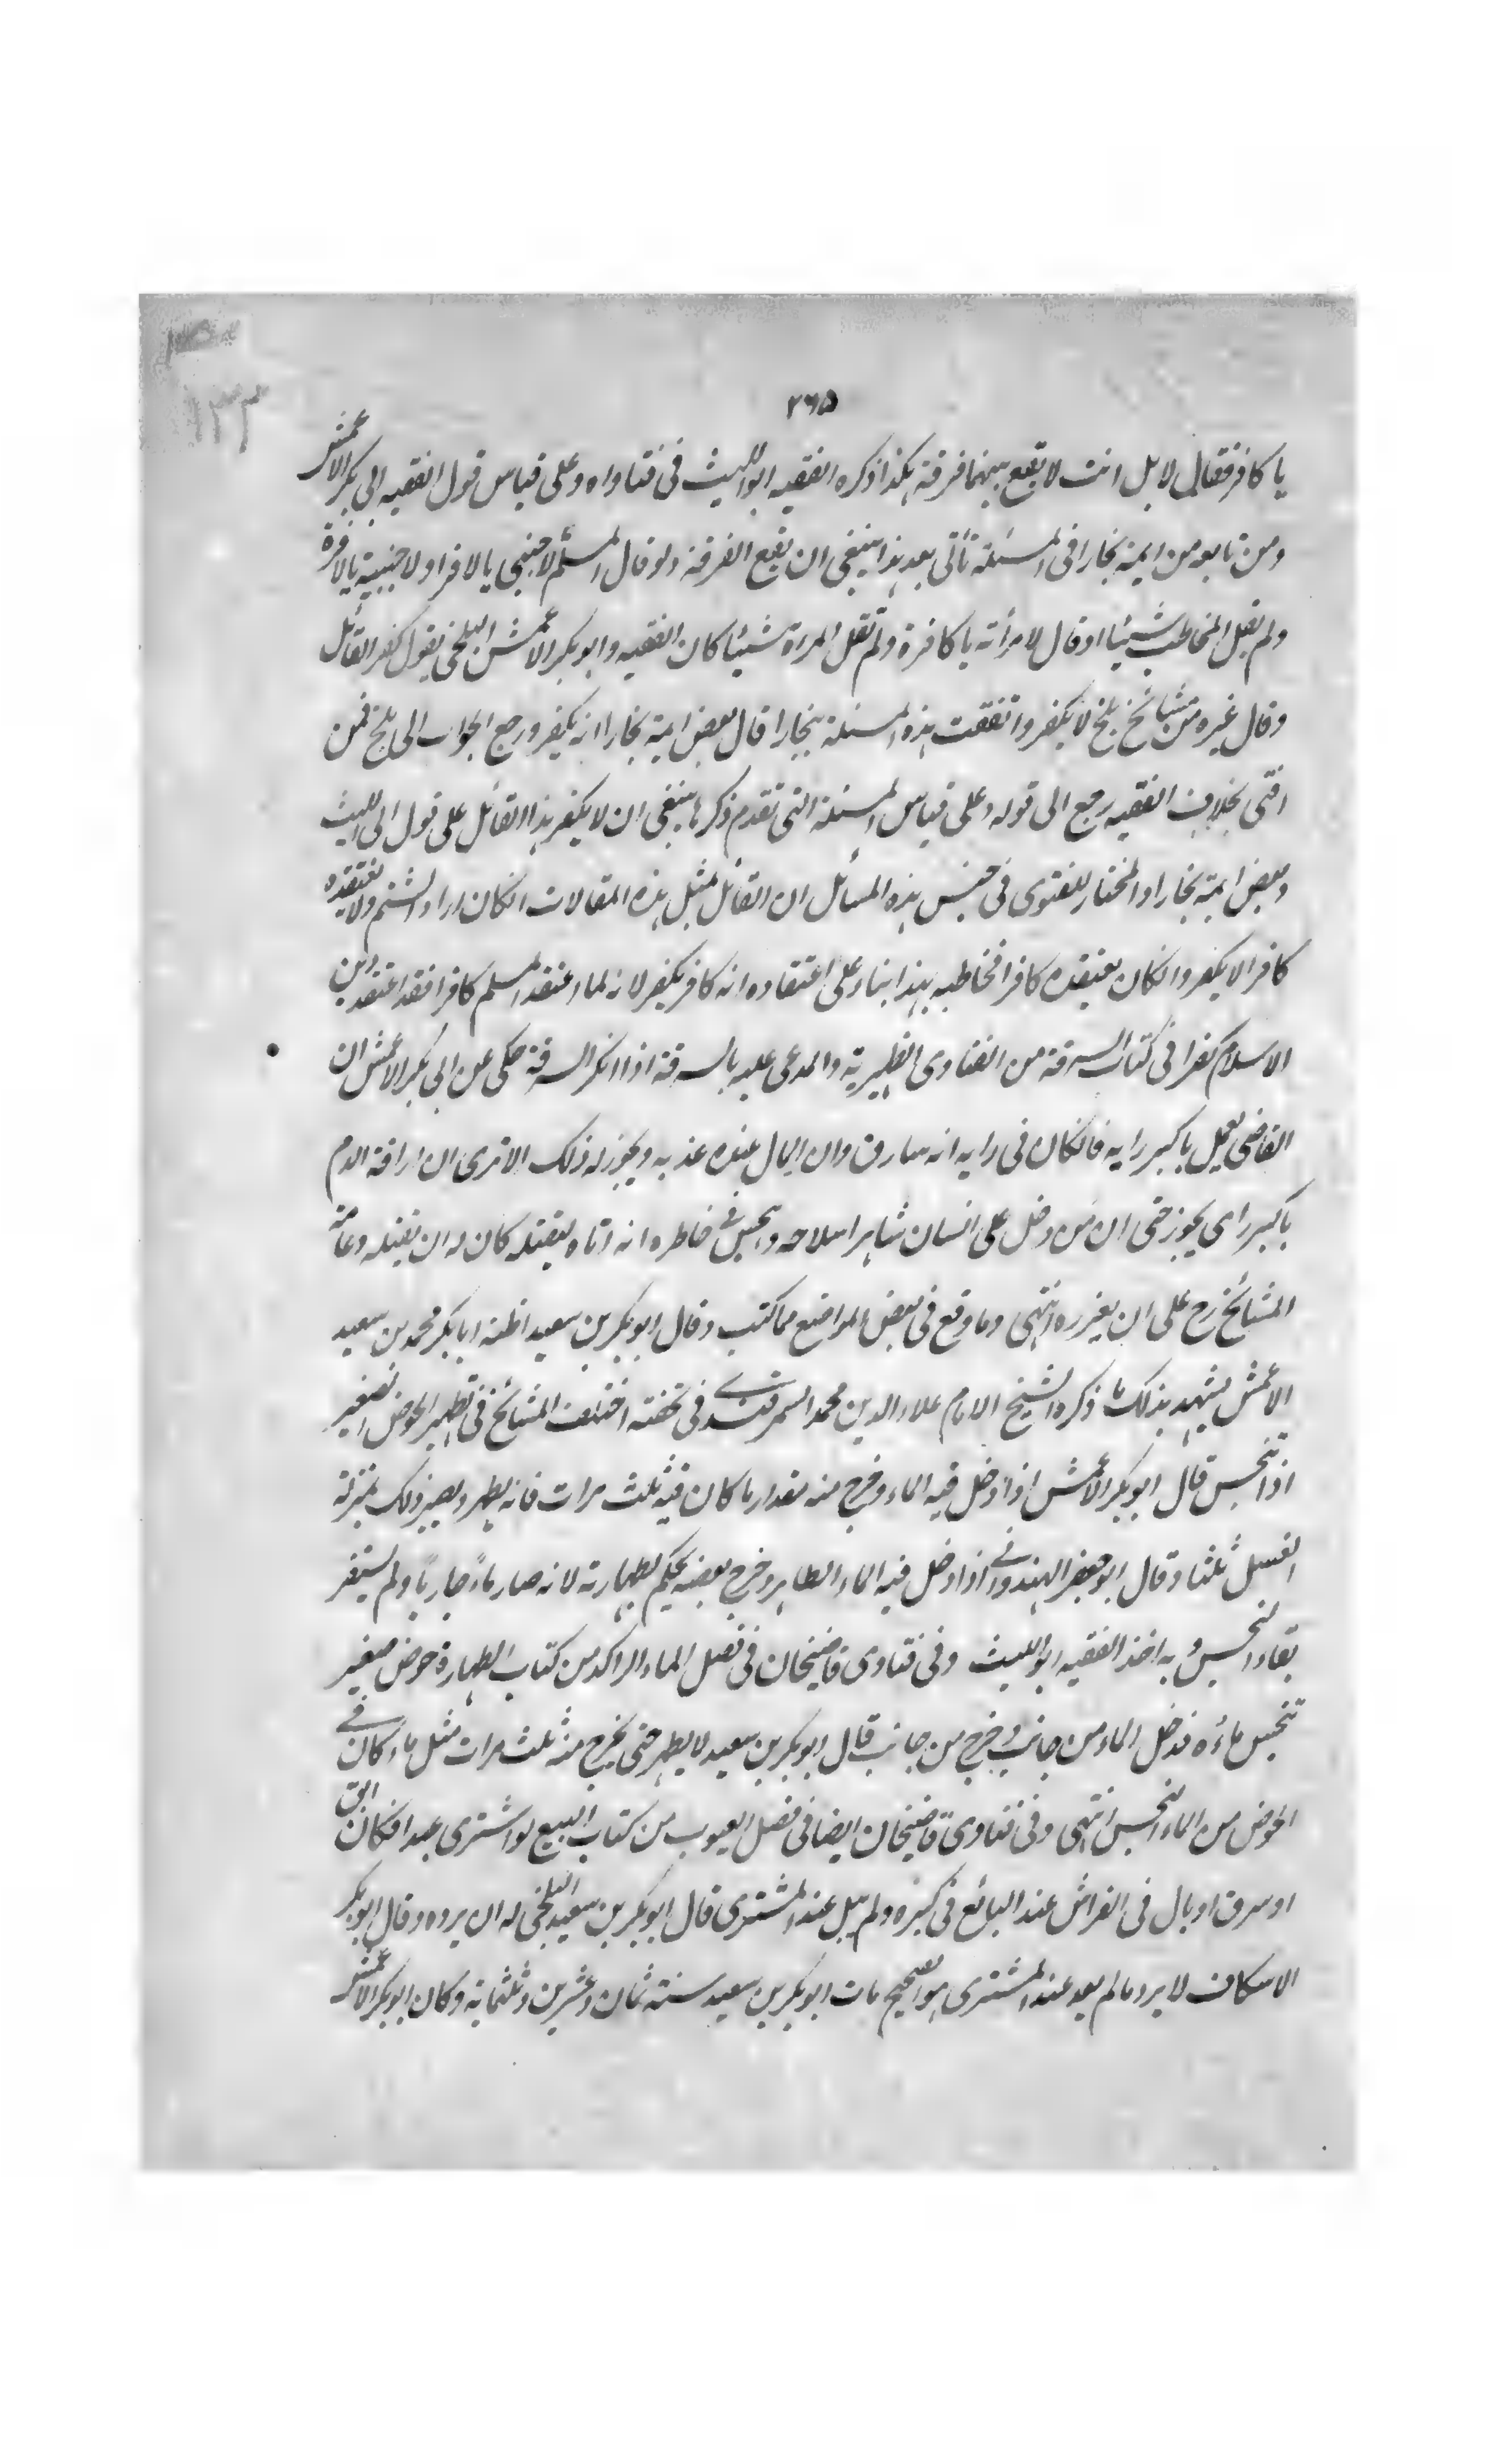 ٢٦٥
١٣٣
يا كافر فقال لا بل انت لا يقع بينهما فرقة هكذا ذكره الفقيه ابو الليث فى فتاواه وعلى قياس قول الفقيه ابى بكر الاعمش
ومن تابعه من ايمة بخارا فى المسئلة تأتى بعد هذا ينبغى ان تقع الفرقة ولو قال المسلم لاجنبى يا كافر او لاجنبية يا كافرة
ولم يقل المخاطب شيئا او قال لامرأته يا كافرة ولم تقل المراة شيئا كان الفقيه وابو بكر الاعمش البلخى يقول كفر القائل
وقال غيره من مشائخ بلخ لا يكفر واتفقت هذه المسئلة ببخارا قال بعض ايمة بخارا انه يكفر ورجع الجواب الى بلخ فمن
افتى بخلاف الفقيه رجع الى قوله وعلى قياس المسئلة التى تقدم ذكرها ينبغى ان لا يكفر هذا القائل على قول ابى الليث
وبعض ايمة بخارا والمختار للفتوى فى جنس هذه المسائل ان القائل بمثل هذه المقالات انكان اراد الشتم ولا يعتقده
كافرا لا يكفر وانكان يعتقده كافرا فخاطبه بهذا بناء على اعتقاده انه كافر يكفر لانه لما اعتقد المسلم كافرا فقد اعتقد دين
الاسلام كفرا فى كتاب السرقة من الفتاوى الظهيرية والمدعى عليه بالسرقة اذا انكر السرقة حكى عن ابى بكر الاعمش ان
القاضى يعمل باكبر رايه فانكان فى رايه انه سارق وان المال عنده عذبه ويجوز له ذلك الا ترى ان اراقة الدم
باكبر راى يجوز حتى ان من دخل على انسان شاهرا سلاحه ويحبس فى خاطره انه اتاه ليقتله كان له ان يقتله وعامة
المشائخ رح على ان يعزره انتهى وما وقع فى بعض المواضع مما كتب وقال ابو بكر بن سعيد اظنه ابا بكر محمد بن سعيد
الاعمش يشهد بذلك ما ذكره الشيخ الامام علاء الدين محمد السمرقندى فى تحفته اختلف المشائخ فى تطهير الحوض الصغير
اذا تنجس قال ابو بكر الاعمش اذا دخل فيه الماء وخرج منه مقدار ما كان فيه ثلث مرات فانه يطهر ويصير ذلك بمنزلة
الغسل ثلثا وقال ابو جعفر الهندوانى اذا دخل فيه الماء الطاهر وخرج بعضه يحكم بطهارته لانه صار ماءً جارياً ولم يستقر
بقاء النجس وبه اخذ الفقيه ابو الليث وفى فتاوى قاضيخان فى فصل الماء الراكد من كتاب الطهارة حوض صغير
تنجس ماؤه فدخل الماء من جانب وخرج من جانب قال ابو بكر بن سعيد لا يطهر حتى يخرج منه ثلث مرات مثل ما كان فى
الحوض من الماء النجس انتهى وفى فتاوى قاضيخان ايضا فى فصل العيوب من كتاب البيع لو اشترى عبدا فكان ابق
او سرق او بال فى الفراش عند البائع فى كبره ولم يبل عند المشترى قال ابو بكر بن سعيد البلخى له ان يرده وقال ابو بكر
الاسكاف لا يرد ما لم يعد عند المشترى هو الصحيح مات ابو بكر بن سعيد سنة ثمان وعشرين وثلثماية وكان ابو بكر الاعمش